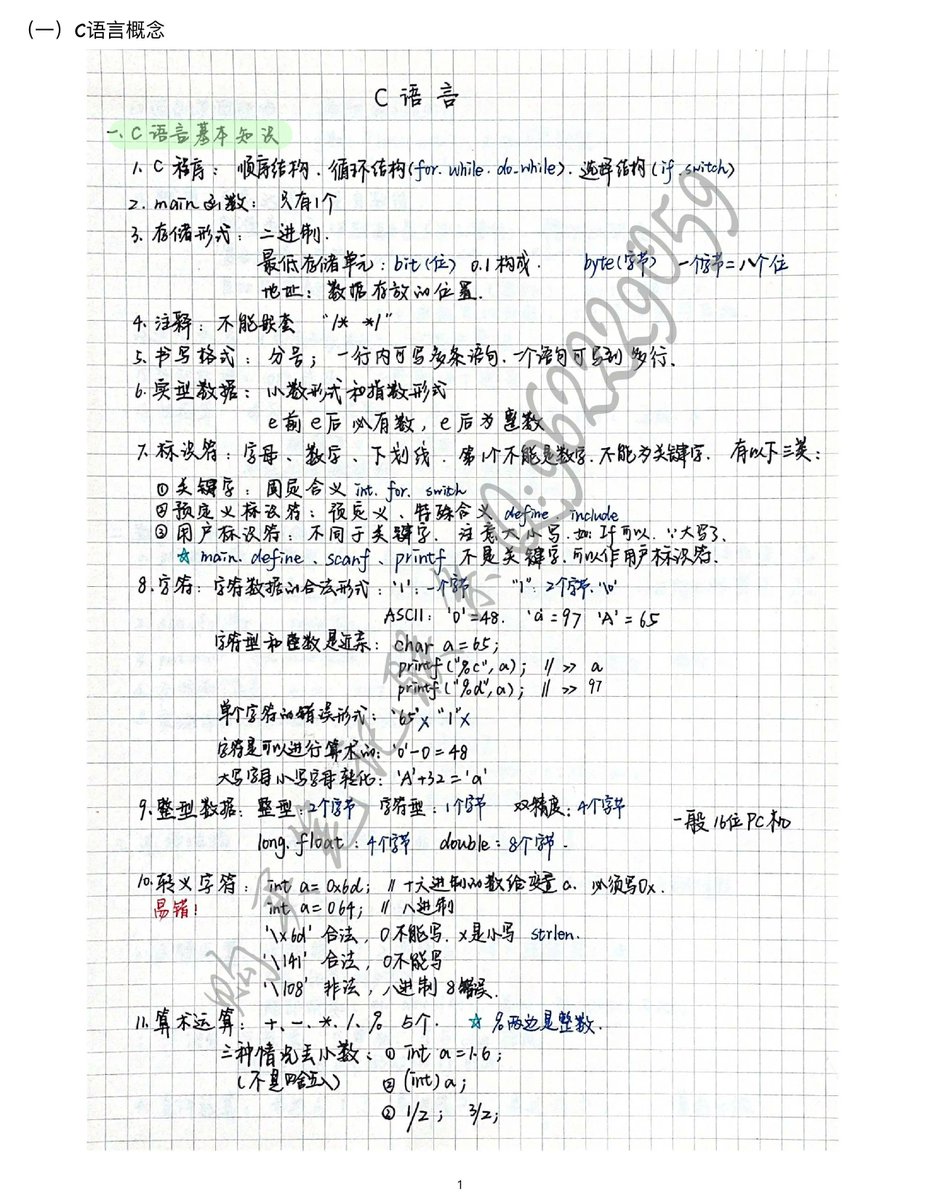 （一）C语言概念
C 语 言
一. C 语言基本知识
1. C 程序： 顺序结构、循环结构(for. while. do_while)、选择结构(if .switch)
2. main函数： 只有1个
3. 存储形式： 二进制.
最低存储单元：bit(位) 0.1 构成. byte(字节) 一个字节=八个位
地址： 数据存放的位置.
4. 注释： 不能嵌套 "/* */"
5. 书写格式： 分号； 一行内可写多条语句、一个语句可写到多行.
6. 实型数据： 小数形式和指数形式
e前e后必有数， e后为整数
7. 标识符： 字母、数字、下划线. 第1个不能是数字、不能为关键字. 有以下三类：
① 关键字： 固定含义 int. for. swith
② 预定义标识符： 预定义、特殊含义 define、include
③ 用户标识符： 不同于关键字. 注意大小写. 如: If 可以. ∵大写了.
☆ main、define、scanf、printf 不是关键字、可以作用户标识符.
8. 字符： 字符数据的合法形式： '1'：一个字节 "1"：2个字节. '\0'
ASCII： '0'=48. 'a'=97 'A'=65
字符型和整数是近亲： char a=65;
printf("%c",a); // >> a
printf("%d",a); // >> 97
单个字符的错误形式： '65'x "1"x
字符是可以进行算术的： '0'-0=48
大写字母小写字母转化： 'A'+32='a'
9. 整型数据： 整型：2个字节 字符型：1个字节 双精度：4个字节
一般16位PC机
long. float：4个字节 double：8个字节.
10. 转义字符： int a=0x6d; // 十六进制的数给变量a. 必须写0x.
易错！ int a=064; // 八进制
'\x6d' 合法， 0不能写. x是小写 strlen.
'\141' 合法， 0不能写
'\108' 非法， 八进制 8错误.
11. 算术运算： +、-、*、/、% 5个. ☆ %两边是整数.
三种情况丢小数： ① int a=1.6;
(不是四舍五入) ② (int)a;
③ 1/2； 3/2;
购买笔记联系QQ:962229059
1